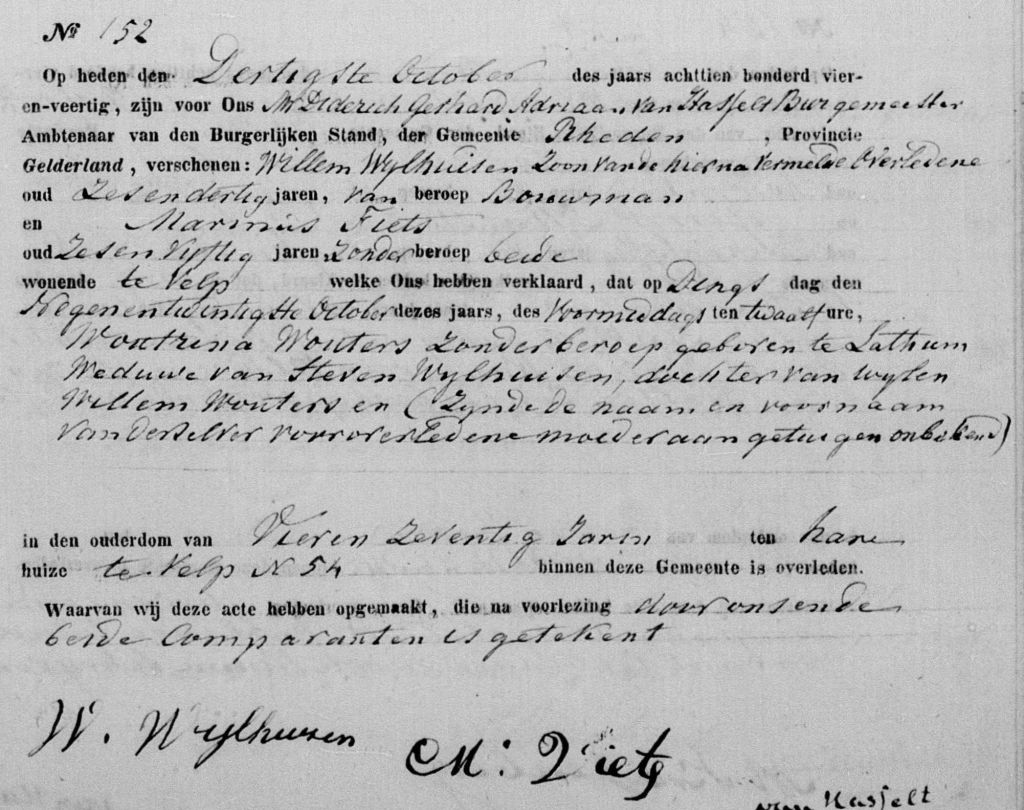 No 152
Op heden den Dertigste October des jaars achttien honderd vier-
en-veertig, zijn voor Ons Mr Diderich Gerhard Adriaan van Hasselt Burgemeester
Ambtenaar van den Burgerlijken Stand, der Gemeente Rheden, Provincie
Gelderland, verschenen: Willem Wylhuisen Zoon van de hierna vermelde Overledene
oud Zesendertig jaren, van beroep Bouwman
en Marinus Fiets
oud Zesenvyftig jaren, zonder beroep beide
wonende te Velp welke Ons hebben verklaard, dat op Dings dag den
Negenentwintigste October dezes jaars, des Voormiddags ten twaalf ure,
Woutrina Wouters zonder beroep geboren te Lathum
Weduwe van Steven Wylhuisen, dochter van wylen
Willem Wouters en (zynde de naam en voornaam
van derselver vooroverledene moeder aan getuigen onbekend)
in den ouderdom van Vieren Zeventig Jaren ten hare
huize te Velp N 54 binnen deze Gemeente is overleden.
Waarvan wij deze acte hebben opgemaakt, die na voorlezing door ons ende
beide Comparanten is getekent
W. Wylhuisen
M: Fiets
van Hasselt